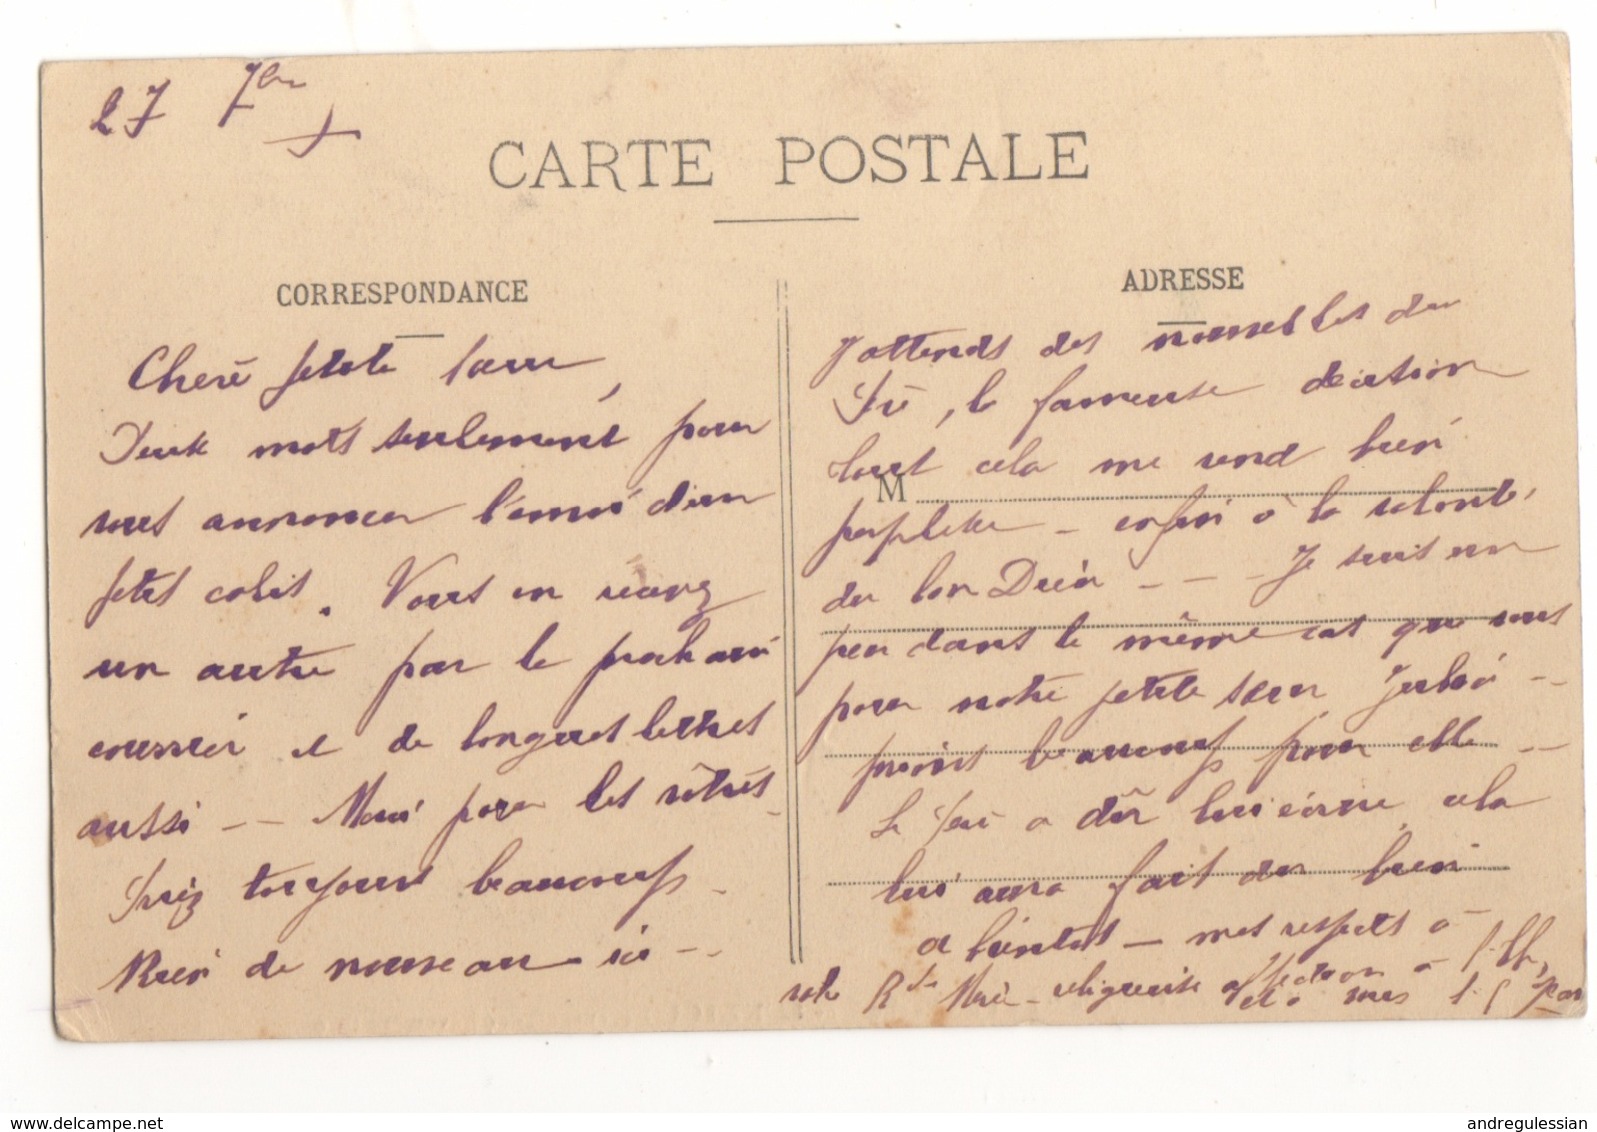 27 7bre
CARTE POSTALE
CORRESPONDANCE
Chère petite sœur,
Deux mots seulement pour
vous annoncer l'envoi d'un
petit colis. Vous en recevrez
un autre par le prochain
courrier et de longues lettres
aussi -- Merci pour les vôtres.
Priez toujours beaucoup.
Rien de nouveau ici --
ADRESSE
J'attends des nouvelles du
la fameuse décision
tout cela me rend bien
M
perplexe - enfin à la volonté
du bon Dieu - - - Je suis un
peu dans le même cas que vous
pour notre petite sœur
prions beaucoup pour elle --
Le a dû lui écrire, cela
lui aura fait du bien
à bientôt - mes respects à
votre Rde Mère - religieuse affection à
andregulessian